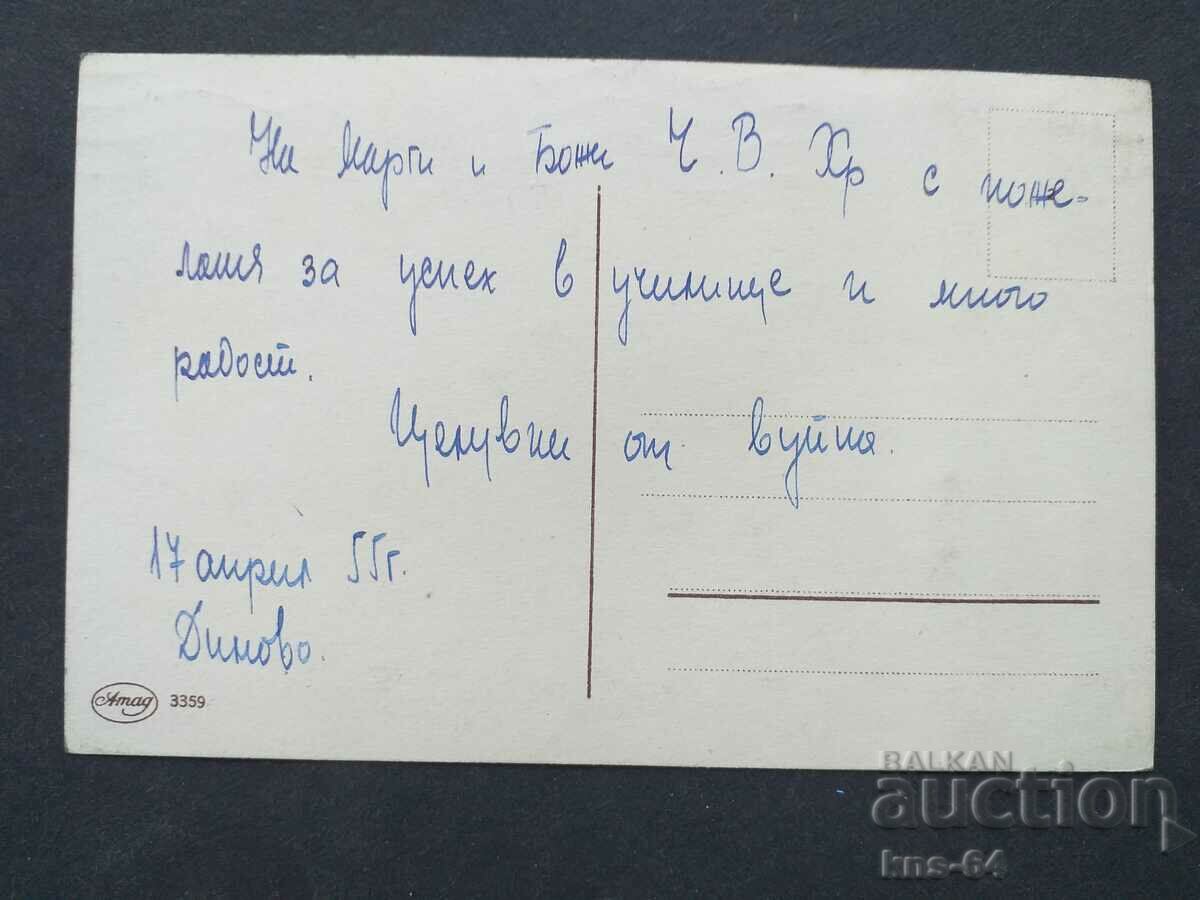 На Марги и Божи Ч. В. Хр с поже-
лания за успех в училище и много
радост.
Целувки от вуйна.
17 април 55г.
Диново.
Amag 3359
BALKAN
auction
kns-64